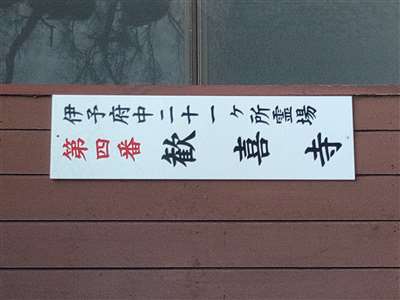 伊予府中二十一ヶ所霊場
第四番 歓喜寺